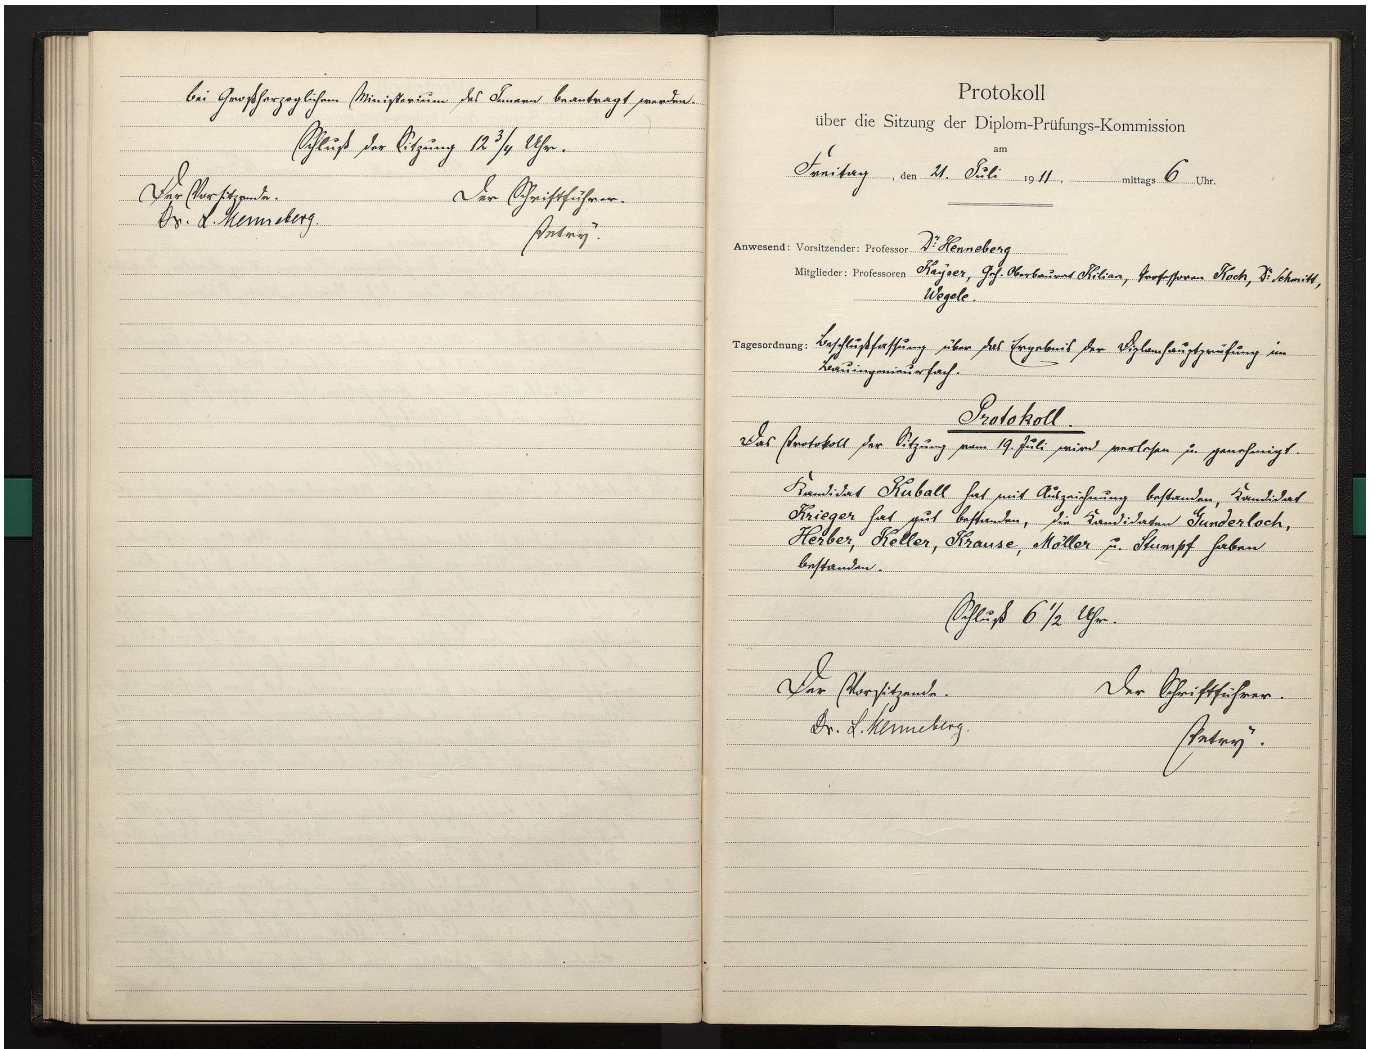 bei Großherzoglichem Ministerium des Innern beantragt werden.
Schluß der Sitzung 12 3/4 Uhr.
Der Vorsitzende. Der Schriftführer.
Dr. L. Henneberg. Petry.
Protokoll
über die Sitzung der Diplom-Prüfungs-Kommission
am
Freitag, den 21. Juli 1911, mittags 6 Uhr.
Anwesend: Vorsitzender: Professor Dr. Henneberg
Mitglieder: Professoren Kayser, Geh. Oberbaurat Kilian, Professoren Koch, Dr. Schmitt,
Wegele.
Tagesordnung: Beschlußfassung über das Ergebnis der Diplomhauptprüfung im
Bauingenieurfach.
Protokoll.
Das Protokoll der Sitzung vom 19. Juli wird verlesen u. genehmigt.
Kandidat Kuball hat mit Auszeichnung bestanden, Kandidat
Krieger hat gut bestanden, die Kandidaten Gunderloch,
Herber, Keller, Krause, Möller u. Stumpf haben
bestanden.
Schluß 6 1/2 Uhr.
Der Vorsitzende. Der Schriftführer.
Dr. L. Henneberg. Petry.